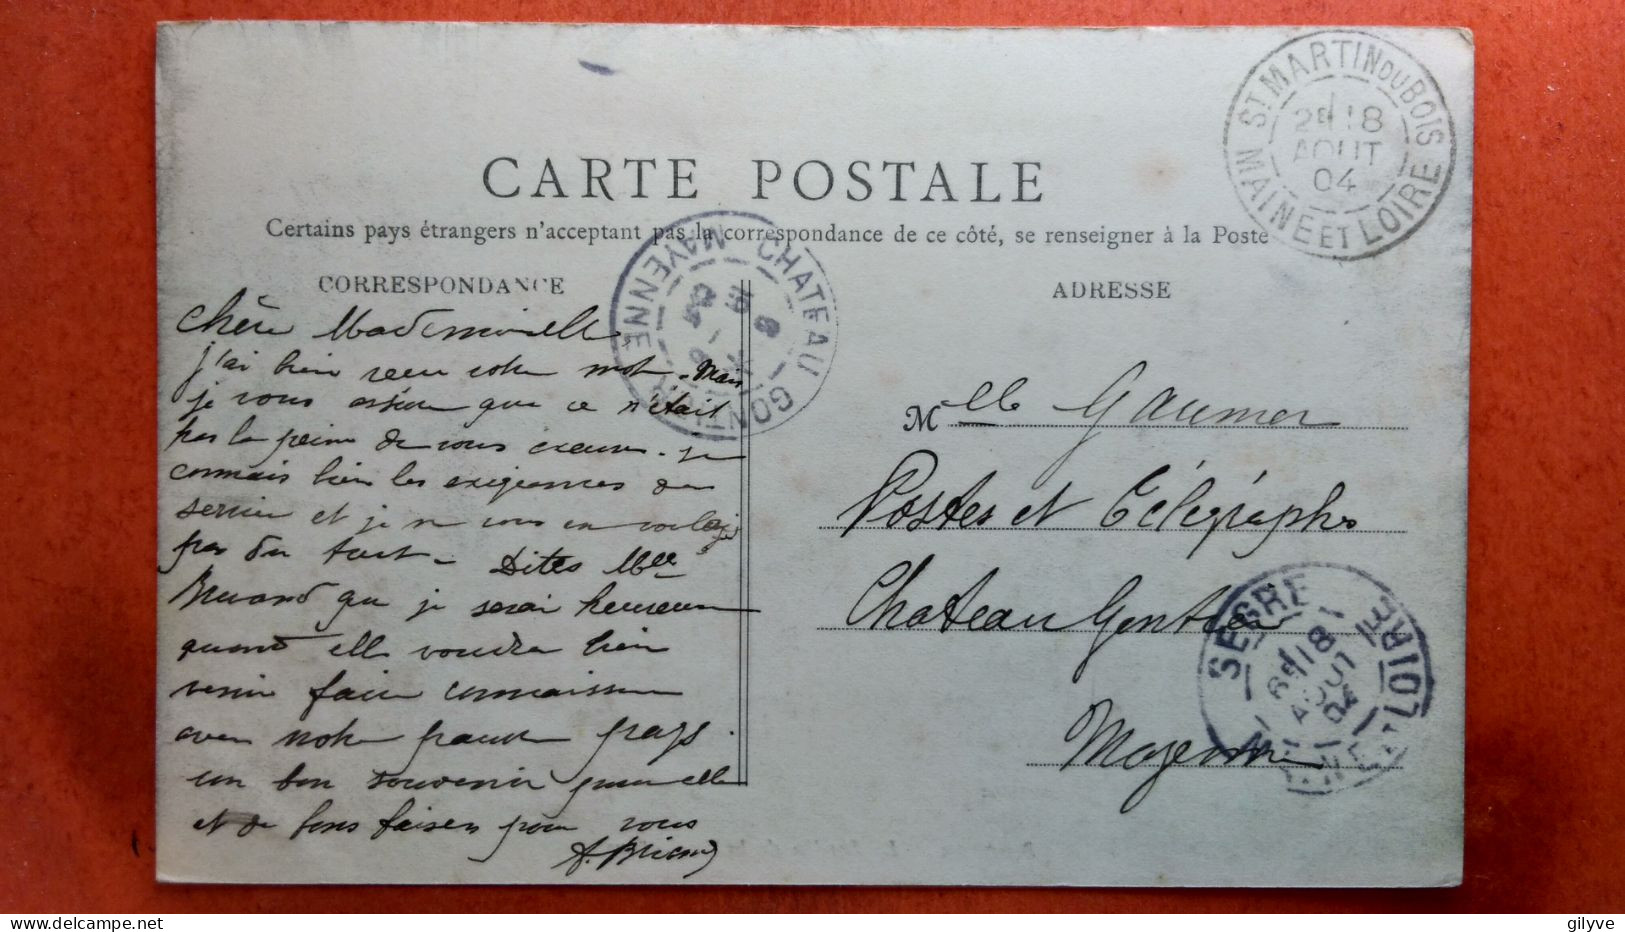 CARTE POSTALE
Certains pays étrangers n'acceptant pas la correspondance de ce côté, se renseigner à la Poste
CORRESPONDANCE
Chère Mademoiselle
j'ai bien reçu votre mot. Mais
je vous assure que ce n'était
pas la peine de vous excuser. je
connais bien les exigences du
service et je ne vous en voulais
pas du tout. Dites Mlle
que je serai heureux
quand elle voudra bien
venir faire connaissance
avec notre pauvre pays.
un bon souvenir pour elle
et de bons baisers pour vous
A. Briand
ADRESSE
Mlle Gaumer
Postes et Télégraphes
Chateau Gontier
Mayenne
ST MARTIN DU BOIS
2E 18
AOUT
04
MAINE ET LOIRE
CHATEAU GONTIER
MAYENNE
SEGRE
6E 18
AOUT
04
MAINE ET LOIRE
delcampe.net
gilyve